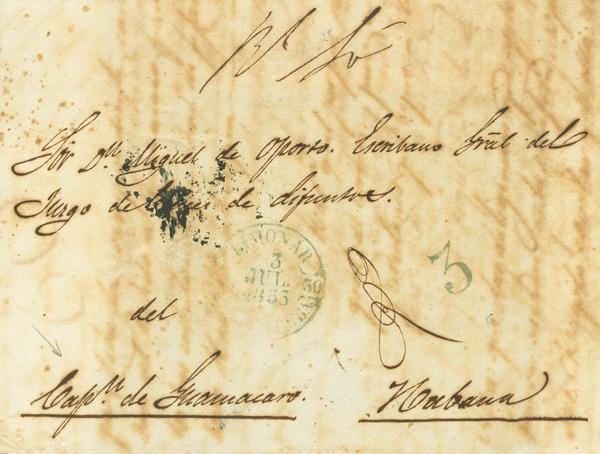 Rl So
Sor Dn Miguel de Oporto. Escribano Gral del
Juzgo de bienes de difuntos.
LIMONAR
3
JUL
1855
3
del
Capn de Guamacaro.
Habana